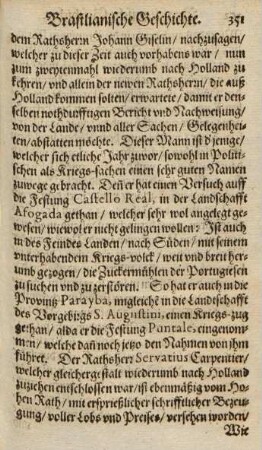 Brasilianische Geschichte. 351
dem Rathsherrn Johann Giselin / nachzusagen /
welcher zu dieser Zeit auch vorhabens war / nun
zum zweytenmahl wiederumb nach Holland zu
kehren / und allein der newen Rathsherrn / die auß
Holland kommen solten / erwartete / damit er den-
selben nothdürfftigen Bericht und Nachweisung /
von der Lande / unnd aller Sachen / Gelegenhei-
ten / abstatten möchte. Dieser Mann ist d'jenige /
welcher sich etliche Jahr zuvor / sowohl in Politi-
schen als Kriegs-sachen einen sehr guten Namen
zuwege gebracht. Deñ er hat einen Versuch auff
die Festung Castello Real, in der Landschafft
Afogada gethan / welcher sehr wol angelegt ge-
wesen / wiewol er nicht gelingen wollen: Ist auch
in des Feindes Landen / nach Süden / mit seinem
unterhabendem Kriegs-volck / weit und breit her-
umb gezogen / die Zuckermühlen der Portugiesen
zu suchen und zu zerstören. So hat er auch in die
Provintz Parayba, imgleich in die Landschafft
des Vorgebirgs S. Augustini, einen Kriegs-zug
gethan / alda er die Festung Pantale, eingenom-
men / welche dañ noch jetzo den Nahmen von ihm
führet. Der Rathsherr Servatius Carpentier /
welcher gleichergestalt wiederumb nach Holland
zuziehen entschlossen war / ist ebenmässig vom Ho-
hen Rath / mit ersprießlicher schrifftlicher Bezeu-
gung / voller Lobs und Preises / versehen worden /
Wie